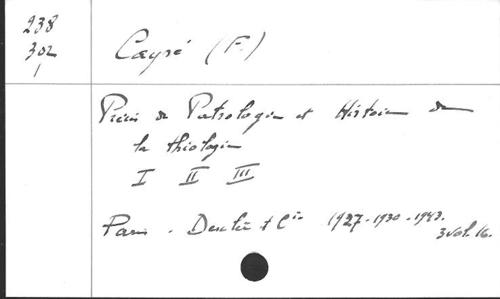 238
302
1
Cayré (F.)
Précis de Patrologie et Histoire de
la théologie
I II III
Paris. Desclée & Cie 1927-1930-1943.
3 vol. 16.